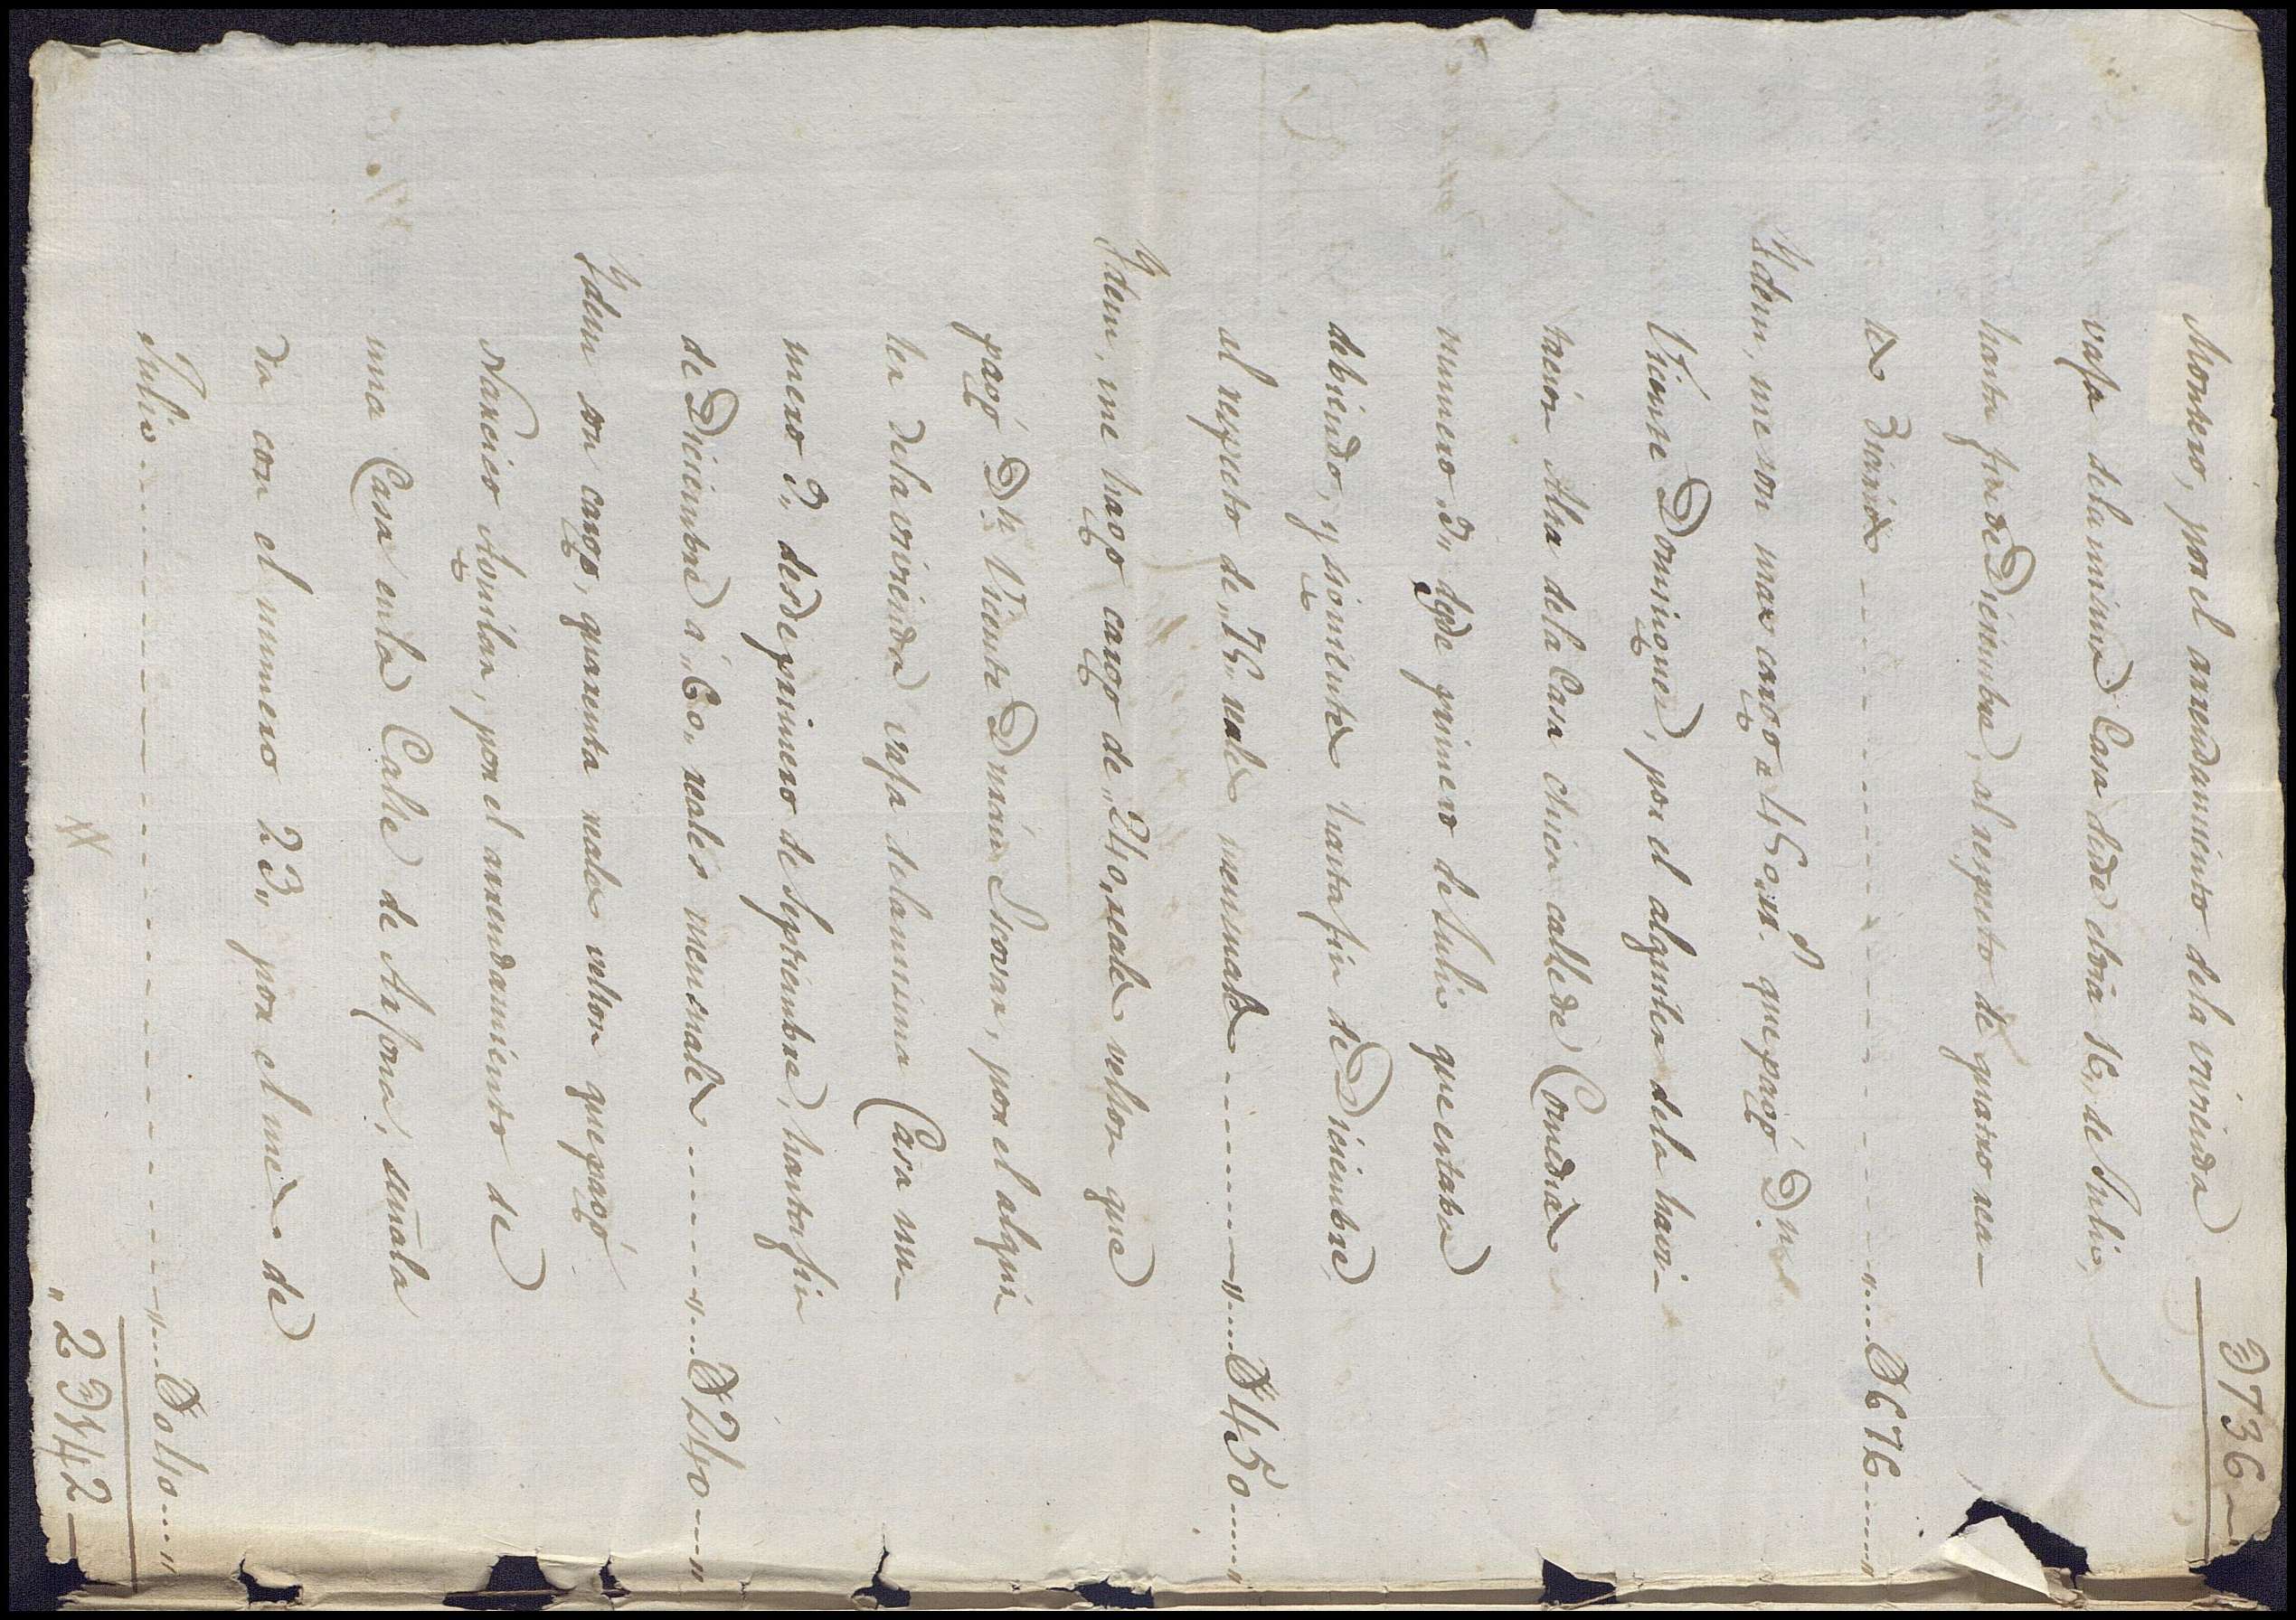 3736
Montero, por el arrendamiento dela vivienda
vaja dela misma Casa desde eldia 16,, de Julio,
hasta fin de Diciembre, al respecto de quatro rea-
les diarios ------ ,,...0676....,,
Ydem, me son mas cargo 450,, rs. que pagó Dn
Vicente Dominguez, por el alquiler dela havi-
tacion Alta dela Casa chica calle de Comedias
numero 3,, desde primero de Julio que estaba
debiendo, y siguientes hasta fin de Diciembre
al respecto de ,,75,, reales mensuales ------ ,,...0450....,,
Ydem, me hago cargo de ,,240,, reales vellon que
pagó Dn Vicente Duran Escovar, por el alqui
ler dela vivienda vaja dela misma Casa nu-
mero 3,, desde primero de Septiembre, hasta fin
de Diciembre á ,,60,, reales mensuales ------ ,,...0240....,,
Ydem son cargo, quarenta reales vellon que pagó
Narciso Aguilar, por el arrendamiento de
una Casa enla Calle de Arjona, señala
da con el numero 23,, por el mes de
Julio ------ ,,...0040....,,
,,2342